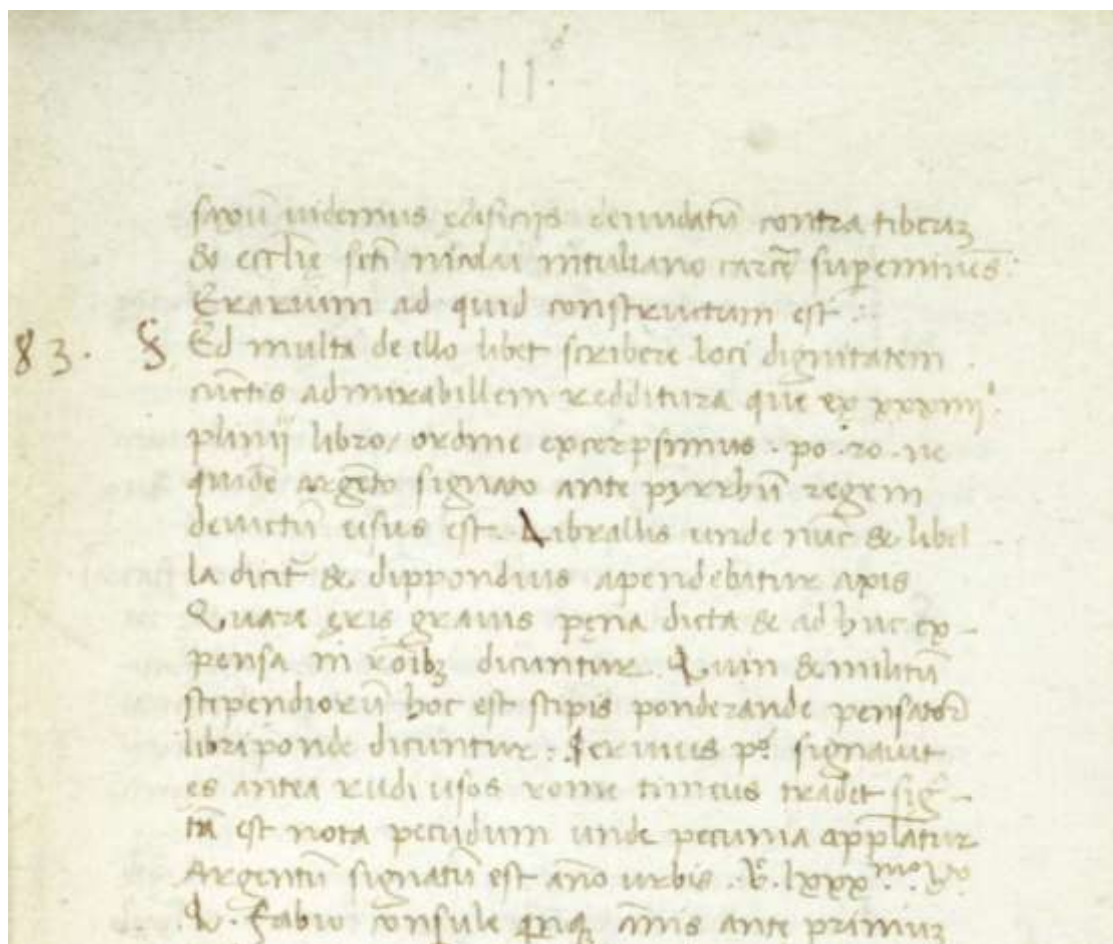 11.
saxum uidemus edificijs denudatū contra tiberiȝ
& ecclīe scti nicolai intuliano carcē supeminēs.
Erarium ad quid constructum est :
83. § Ed multa de illo libet scribere loci dignitatem
cūctis admirabillem redditura que ex xxxiij
plinij libro/ ordine excerpsimus. po. ro. ne
quidē argēto signato ante pyrrhū regem
deuictū usus est. Librallis unde nūc & libel-
la dicit̄ & dippondius apendebatur axis
Quare ęris grauis pęna dicta & ad huc ex-
pensa in rōibȝ dicuntur. Quin & militū
stipendiorū hoc est stipis ponderande pensatoꝝ
libriponde dicuntur: Seruius pº. signauit
es antea rudi usos rome timeus tradet siḡ-
tā est nota pecudum unde pecunia appl̄atur
Argentū signatū est año urbis. .lxxx
Q. Fabio consule añis ante primuȝ